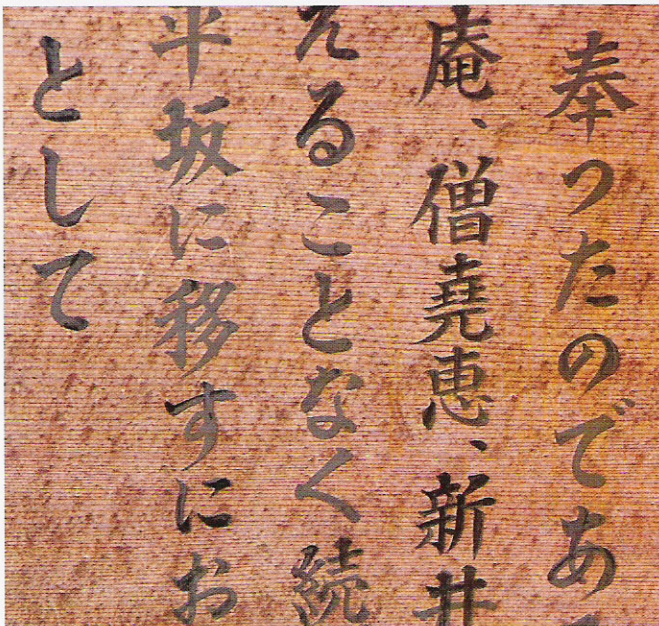 奉つたのである
庵、僧堯恵、新井
えることなく続
平坂に移すにお
として